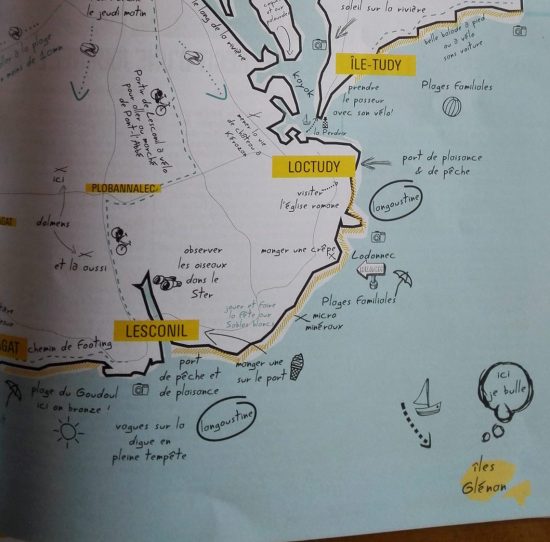 le jeudi matin
le long de la rivière
soleil sur la rivière
belle balade à pied
ou à vélo
sans voiture
à la plage
kayak
ÎLE-TUDY
prendre
le passeur
avec son vélo!
Plages Familiales
Partir de Lesconil à vélo
pour aller au marché
de Pont l'Abbé
mener la vie
de château à
Kérazan
la Perdrix
LOCTUDY
port de plaisance
& de pêche
ici
PLOBANNALEC
visiter
l'Église romane
langoustine
dolmens
et là aussi
observer
les oiseaux
dans le
Ster
manger une crêpe
Lodonnec
Plages Familiales
jouer et faire
la fête aux
Sables blancs
micro
minéraux
LESCONIL
GAT
GAT
chemin de footing
port
de pêche et
de plaisance
manger une
sur le port
plage du Goudoul
ici on bronze !
langoustine
vagues sur la
digue en
pleine tempête
ici
je bulle
îles
Glénan